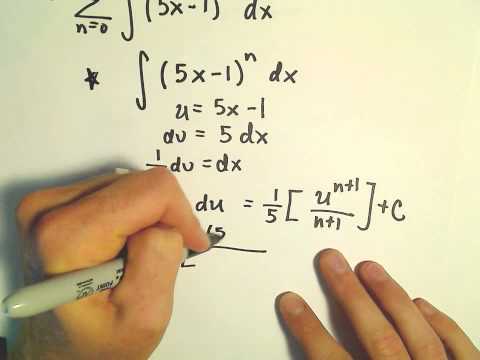 ∑ n=0 ∫ (5x-1) dx
* ∫ (5x-1)^n dx
u = 5x-1
du = 5 dx
1/5 du = dx
du = 1/5 [ u^(n+1) / n+1 ] + C
[ (5